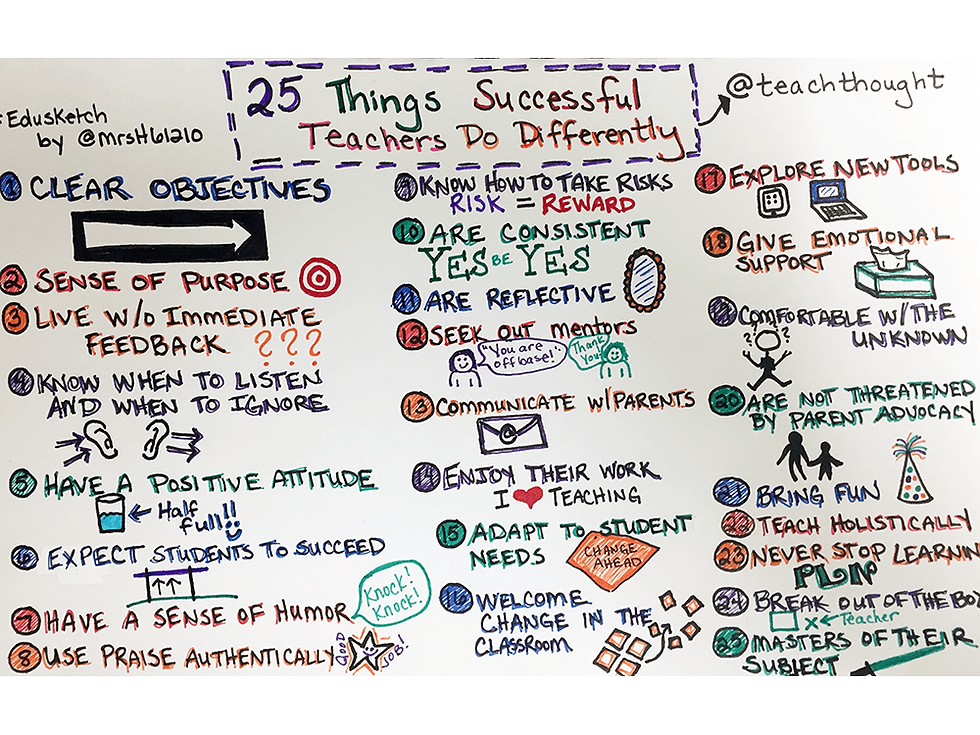 Edusketch
by @mrsH61210
25 Things Successful
Teachers Do Differently
@teachthought
1 CLEAR OBJECTIVES
2 SENSE OF PURPOSE
3 LIVE W/o Immediate
FEEDBACK ???
4 KNOW WHEN TO LISTEN
AND WHEN TO IGNORE
5 HAVE A POSITIVE ATTITUDE
Half
full!!
6 EXPECT STUDENTS TO SUCCEED
7 HAVE A SENSE OF HUMOR
Knock!
Knock!
8 USE PRAISE AUTHENTICALLY
GOOD JOB!
9 KNOW HOW TO TAKE RISKS
RISK = REWARD
10 ARE CONSISTENT
YES BE YES
11 ARE REFLECTIVE
12 SEEK OUT mentors
"You are
off base!"
Thank
You
13 COMMUNICATE W/PARENTS
@
14 ENJOY THEIR WORK
I ❤ TEACHING
15 ADAPT TO STUDENT
NEEDS
CHANGE
AHEAD
16 WELCOME
CHANGE IN THE
CLASSROOM
17 EXPLORE NEW TOOLS
18 GIVE EMOTIONAL
SUPPORT
19 COMFORTABLE W/THE
UNKNOWN
? ?
20 ARE NOT THREATENED
BY PARENT ADVOCACY
21 BRING FUN
22 TEACH HOLISTICALLY
23 NEVER STOP LEARNIN
PLN
24 BREAK OUT OF THE BO
x ← Teacher
25 MASTERS OF THEIR
SUBJECT